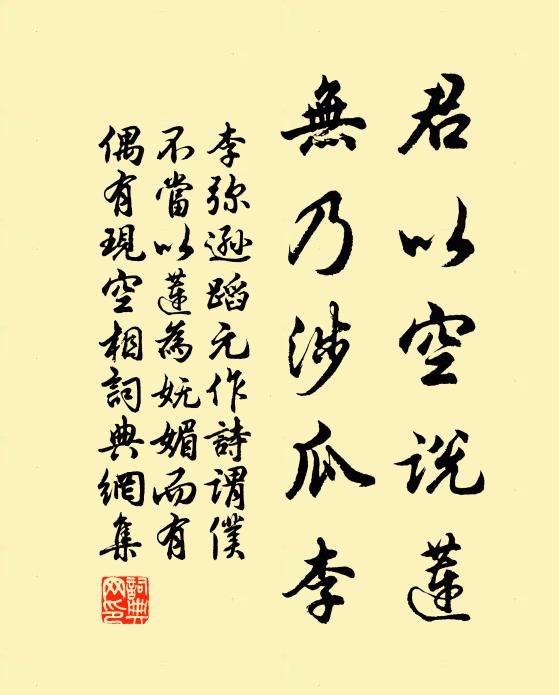 君以空说蓮
無乃涉瓜李
李弥遜蹈元作詩謂僕
不當以蓮為妩媚而有
偶有現空相詞典網集
詞典网印